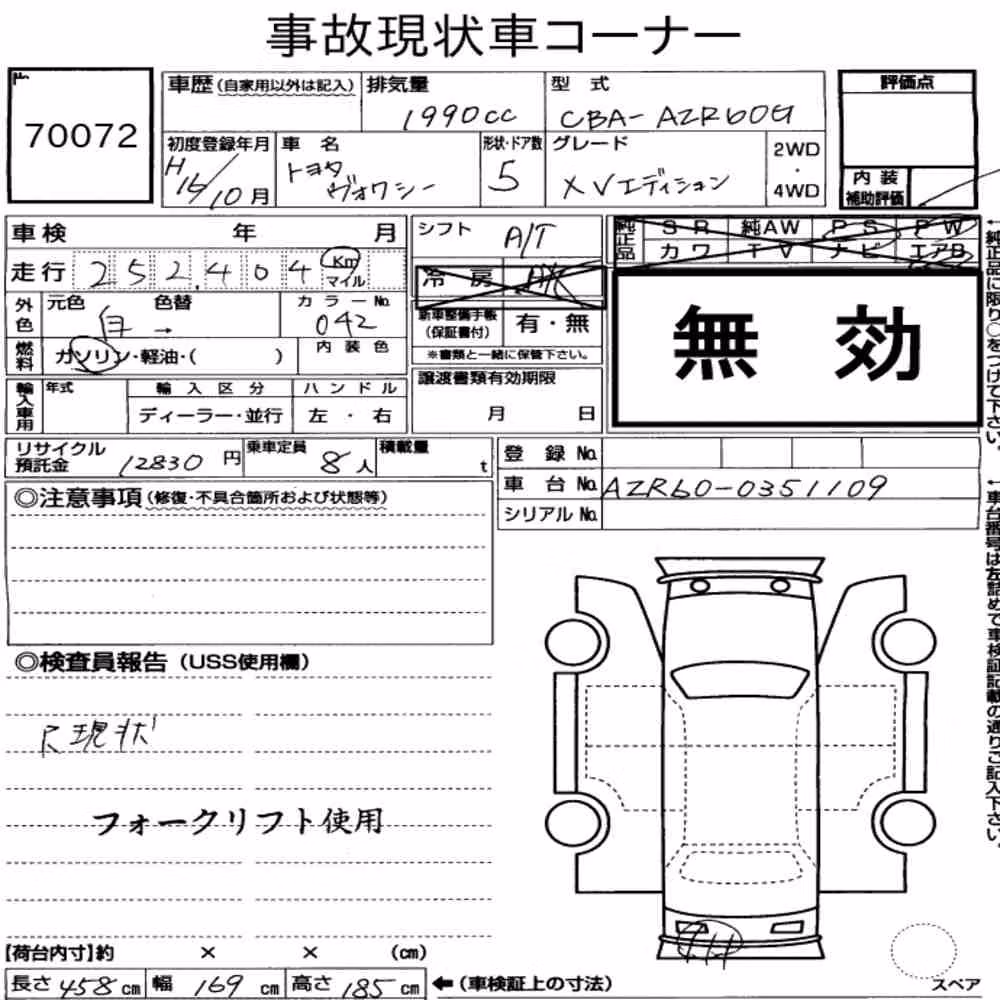 事故現状車コーナー
No.
70072
車歴(自家用以外は記入) 排気量 型式 評価点
1990cc CBA-AZR60G
初度登録年月 車名 形状・ドア数 グレード 2WD・4WD
H15/10月 トヨタ ヴォクシー 5 XVエディション
内装補助評価
車検 年 月 シフト A/T
純正品 SR 純AW PS PW
カワ TV ナビ エアB
走行 252,404 Km マイル 冷房
外色 元色 色替 カラーNo.
白 → 042
新車整備手帳(保証書付) 有・無
※書類と一緒に保管下さい。
無効
燃料 ガソリン・軽油・( ) 内装色
輸入車用 年式 輸入区分 ハンドル
ディーラー・並行 左・右
譲渡書類有効期限
月 日
←純正品に限り○をつけて下さい。
リサイクル預託金 12830円 乗車定員 8人 積載量 t
登録No.
車台No. AZR60-0351109
シリアルNo.
←車台番号は左詰めで車検証記載の通りご記入下さい。
◎注意事項(修復・不具合箇所および状態等)
◎検査員報告(USS使用欄)
現状
フォークリフト使用
【荷台内寸】約 × × (cm)
長さ458cm 幅169cm 高さ185cm ←(車検証上の寸法)
スペア